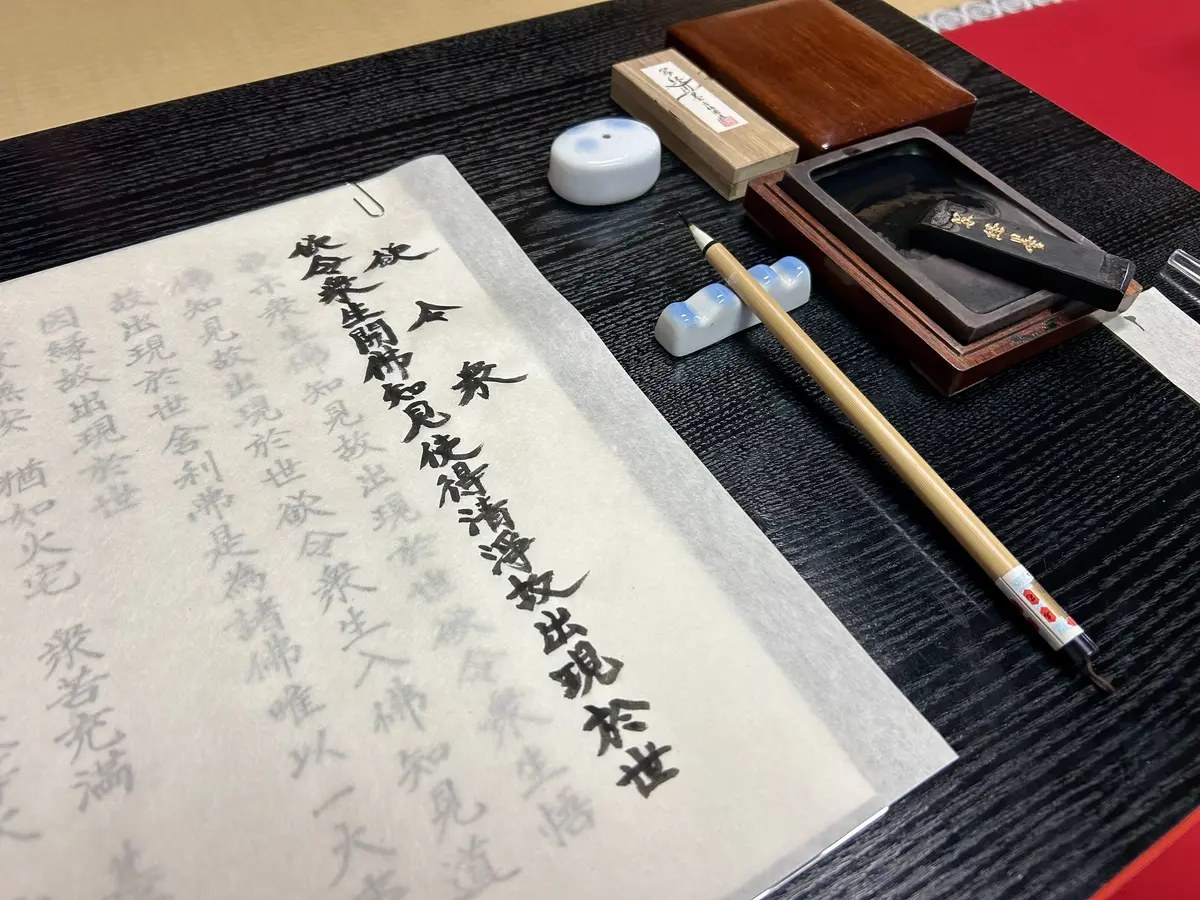 欲令衆
欲令衆生開佛知見使得清淨故出現於世
示衆生佛知見故出現於世欲令衆生悟
佛知見故出現於世欲令衆生入佛知見道
故出現於世舍利弗是為諸佛唯以一大事
因緣故出現於世
無安 猶如火宅 衆苦充滿